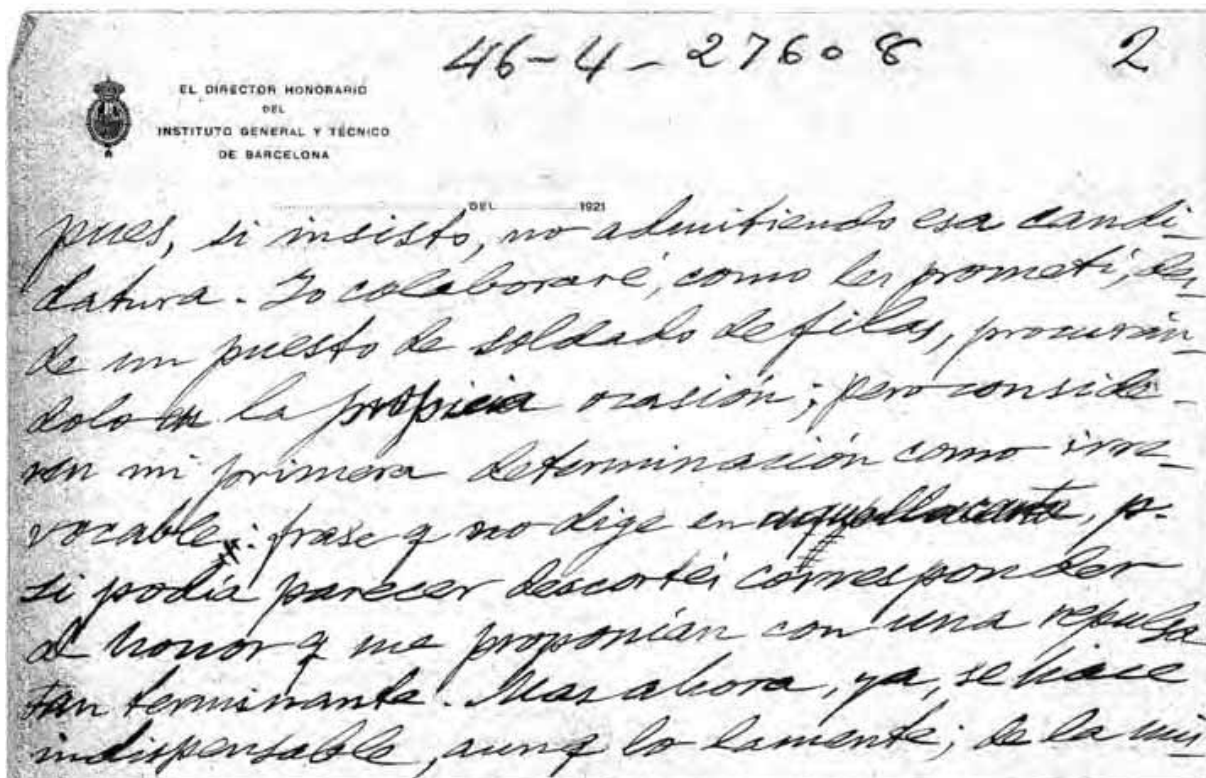 46-4-27608 2
EL DIRECTOR HONORARIO
DEL
INSTITUTO GENERAL Y TÉCNICO
DE BARCELONA
DEL 1921
pues, si insisto, no admitiendo esa candi-
datura. Yo colaboraré, como les prometí, des-
de un puesto de soldado de filas, procurán-
dolo en la propicia ocasión; pero conside-
ren mi primera determinación como irre-
vocable: frase q no dige en aquella carta, p.
si podía parecer descortés corresponder
al honor q me proponían con una repulsa
tan terminante. Mas ahora, ya, se hace
indispensable, aunq lo lamente; de la mis